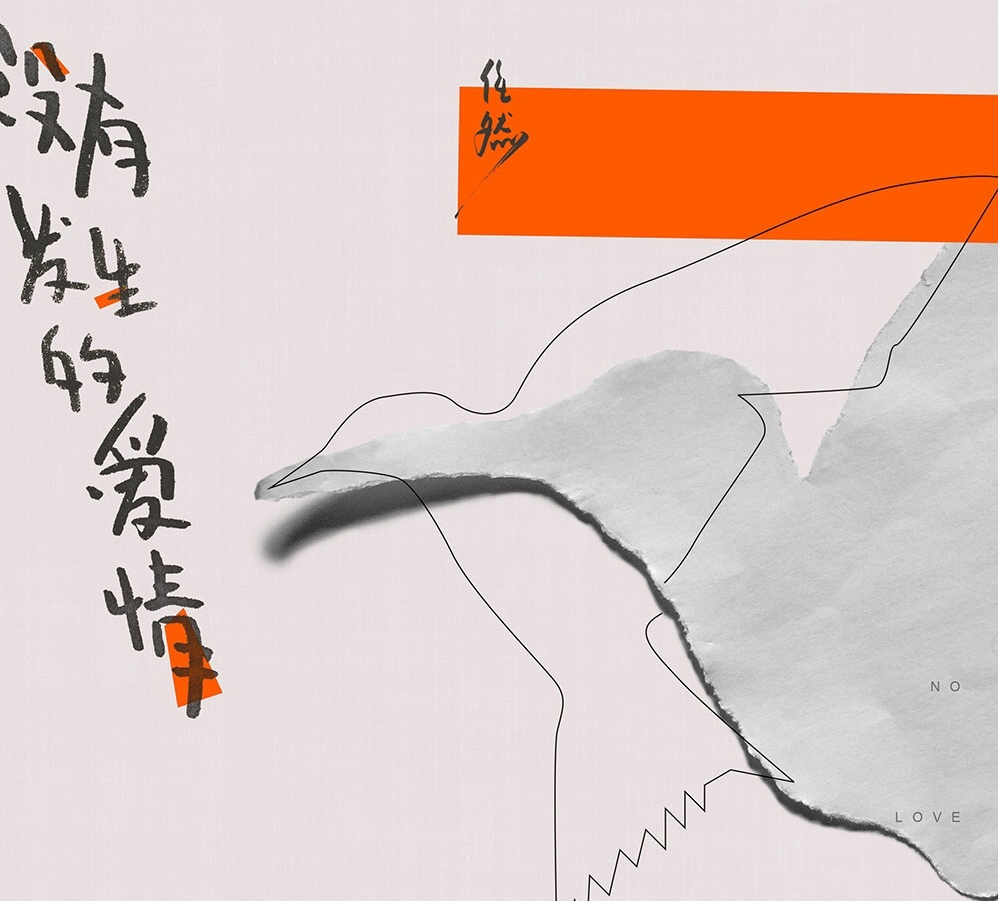 没有
发生
的
爱
情
任
然
NO
LOVE